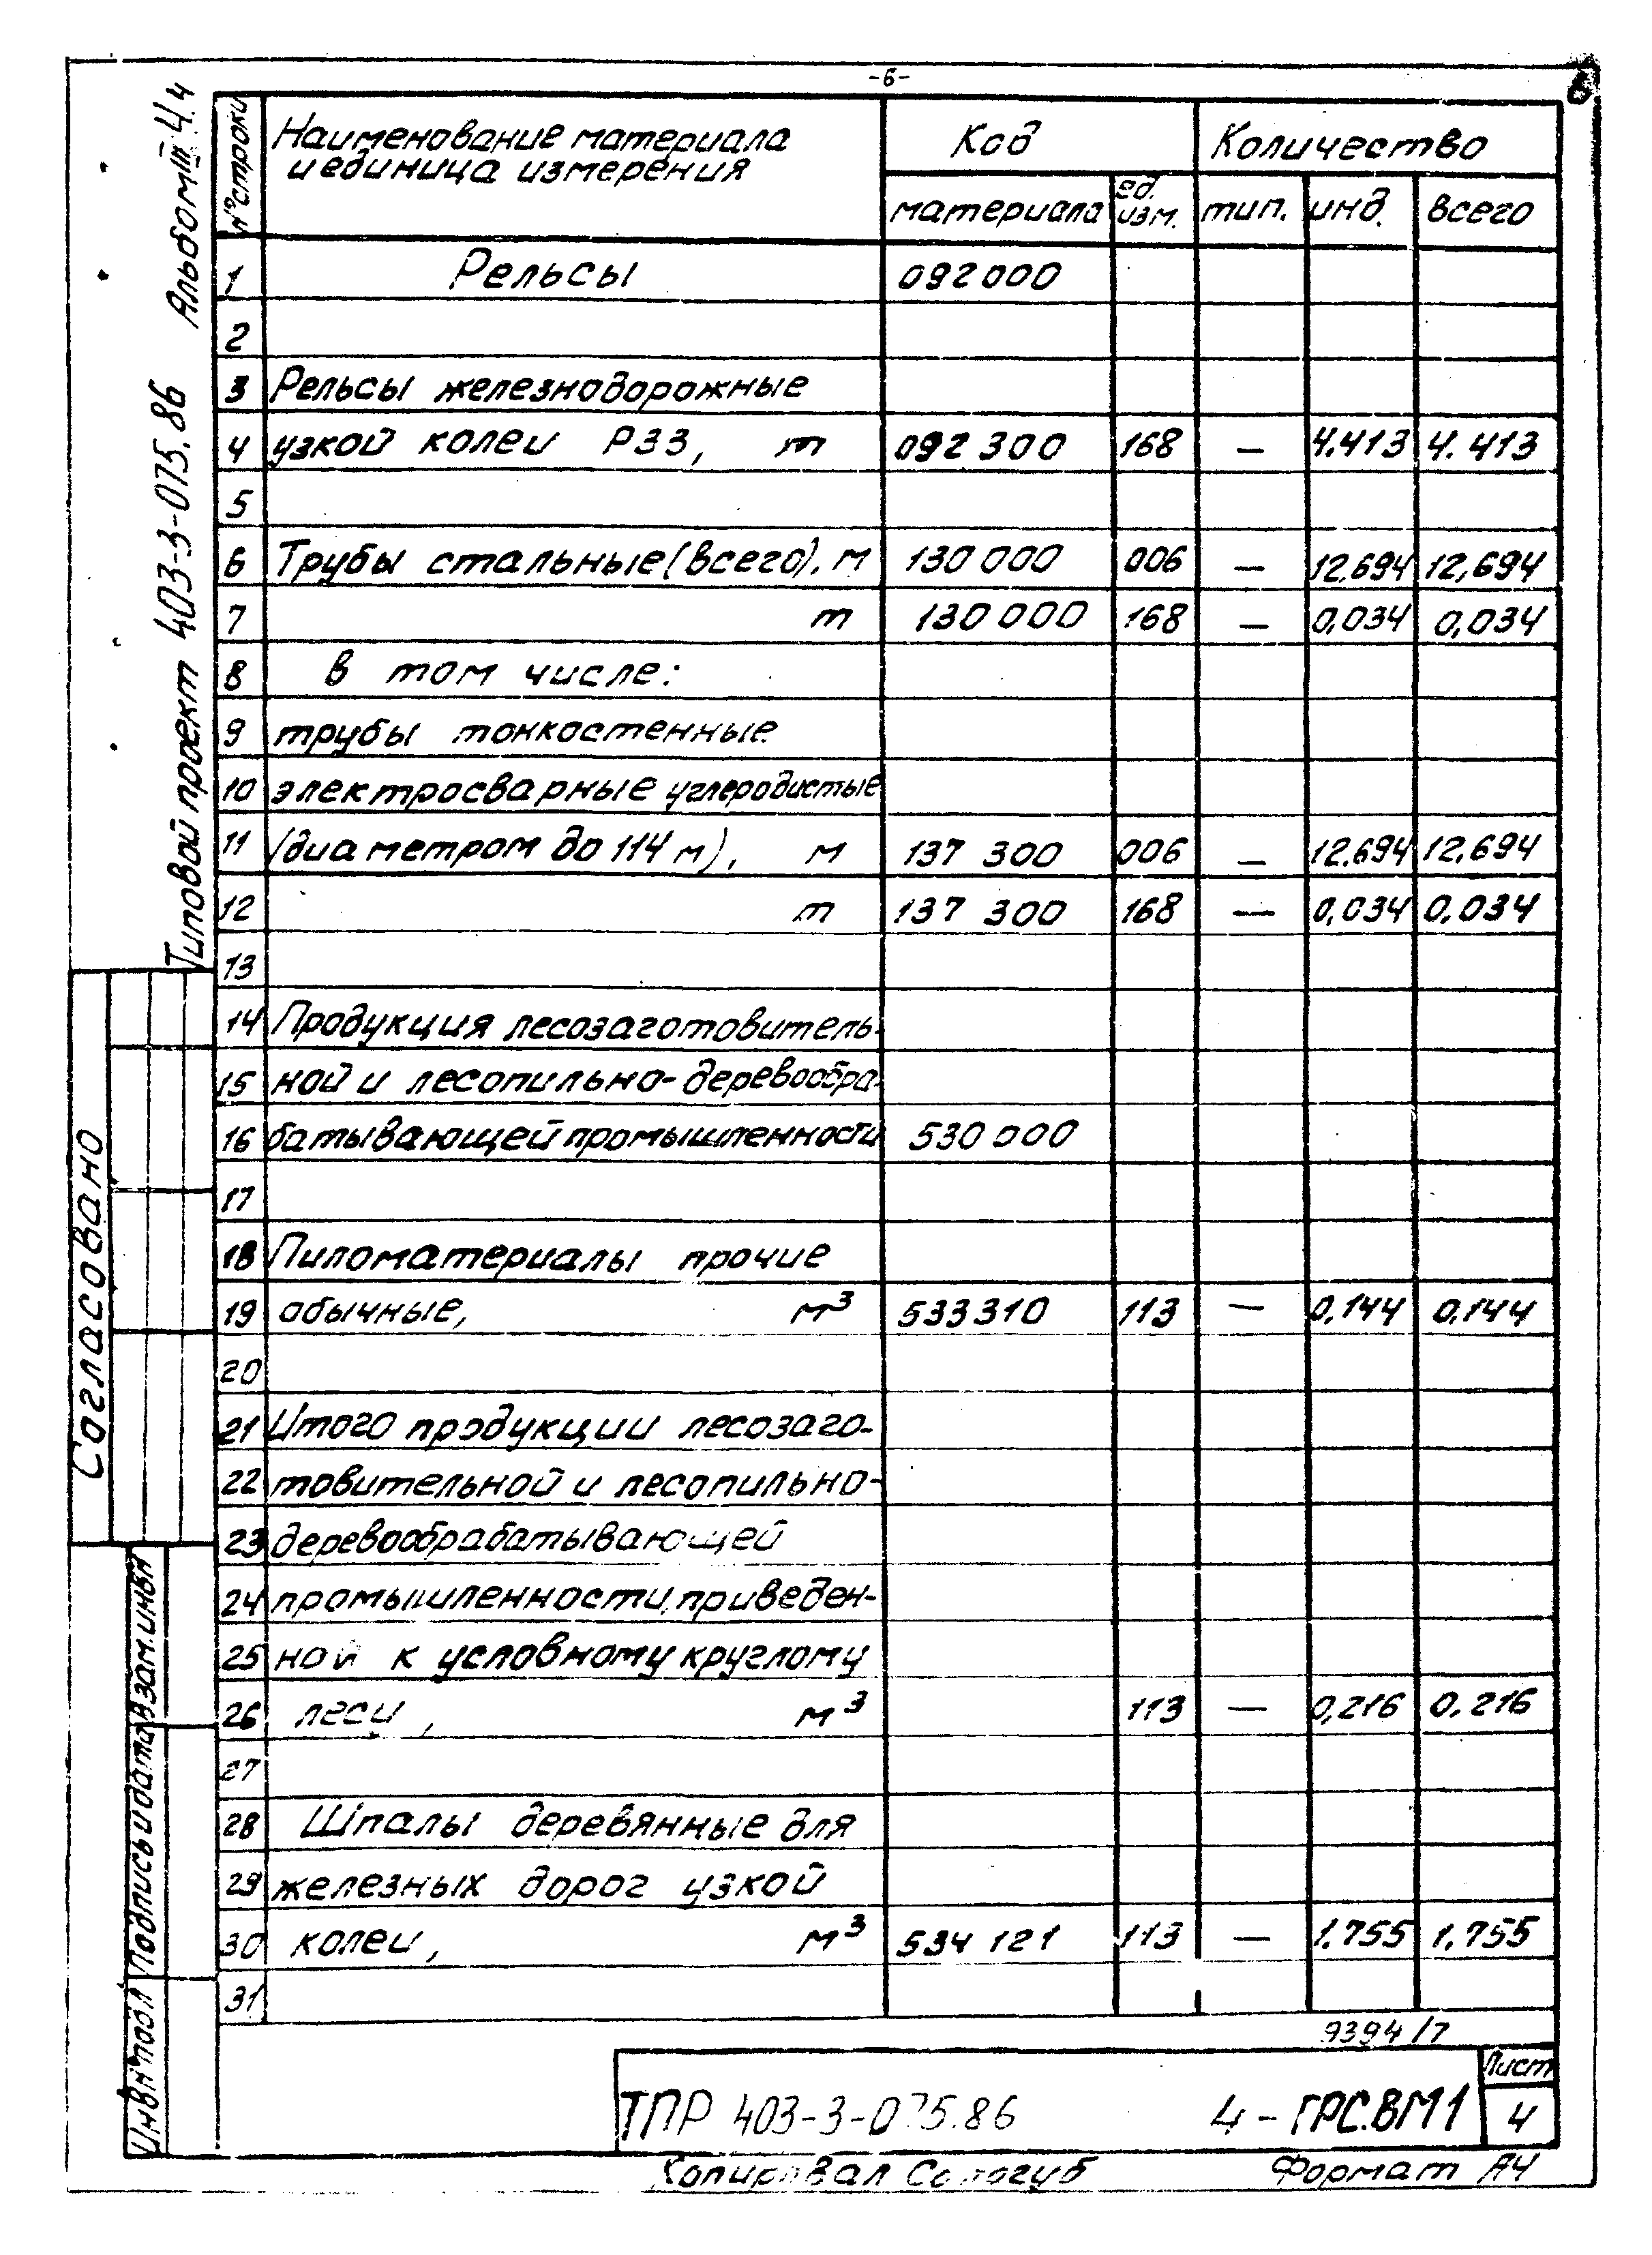 -6-
6
Альбом III Ч.4
Типовой проект 403-3-075.86
№ строки
Наименование материала
и единица измерения
Код
Количество
материала
ед. изм.
тип.
инд.
всего
1 Рельсы 092000
2
3 Рельсы железнодорожные
4 узкой колеи Р33, т 092 300 168 — 4.413 4.413
5
6 Трубы стальные (всего), м 130 000 006 — 12.694 12,694
7 т 130 000 168 — 0,034 0,034
8 в том числе:
9 трубы тонкостенные
10 электросварные углеродистые
11 (диаметром до 114 м), м 137 300 006 — 12.694 12,694
12 т 137 300 168 — 0,034 0,034
13
14 Продукция лесозаготовитель-
15 ной и лесопильно-деревообра-
16 батывающей промышленности 530 000
17
18 Пиломатериалы прочие
19 обычные, м³ 533310 113 — 0,144 0,144
20
21 Итого продукции лесозаго-
22 товительной и лесопильно-
23 деревообрабатывающей
24 промышленности, приведен-
25 ной к условному круглому
26 лесу, м³ 113 — 0,216 0,216
27
28 Шпалы деревянные для
29 железных дорог узкой
30 колеи, м³ 534 121 113 — 1.755 1,755
31
Согласовано
Взам.инв.№
Подпись и дата
Инв№подл
9394/7
ТПР 403-3-075.86 4-ГРС.ВМ1
Лист
4
Копировал Сологуб Формат А4